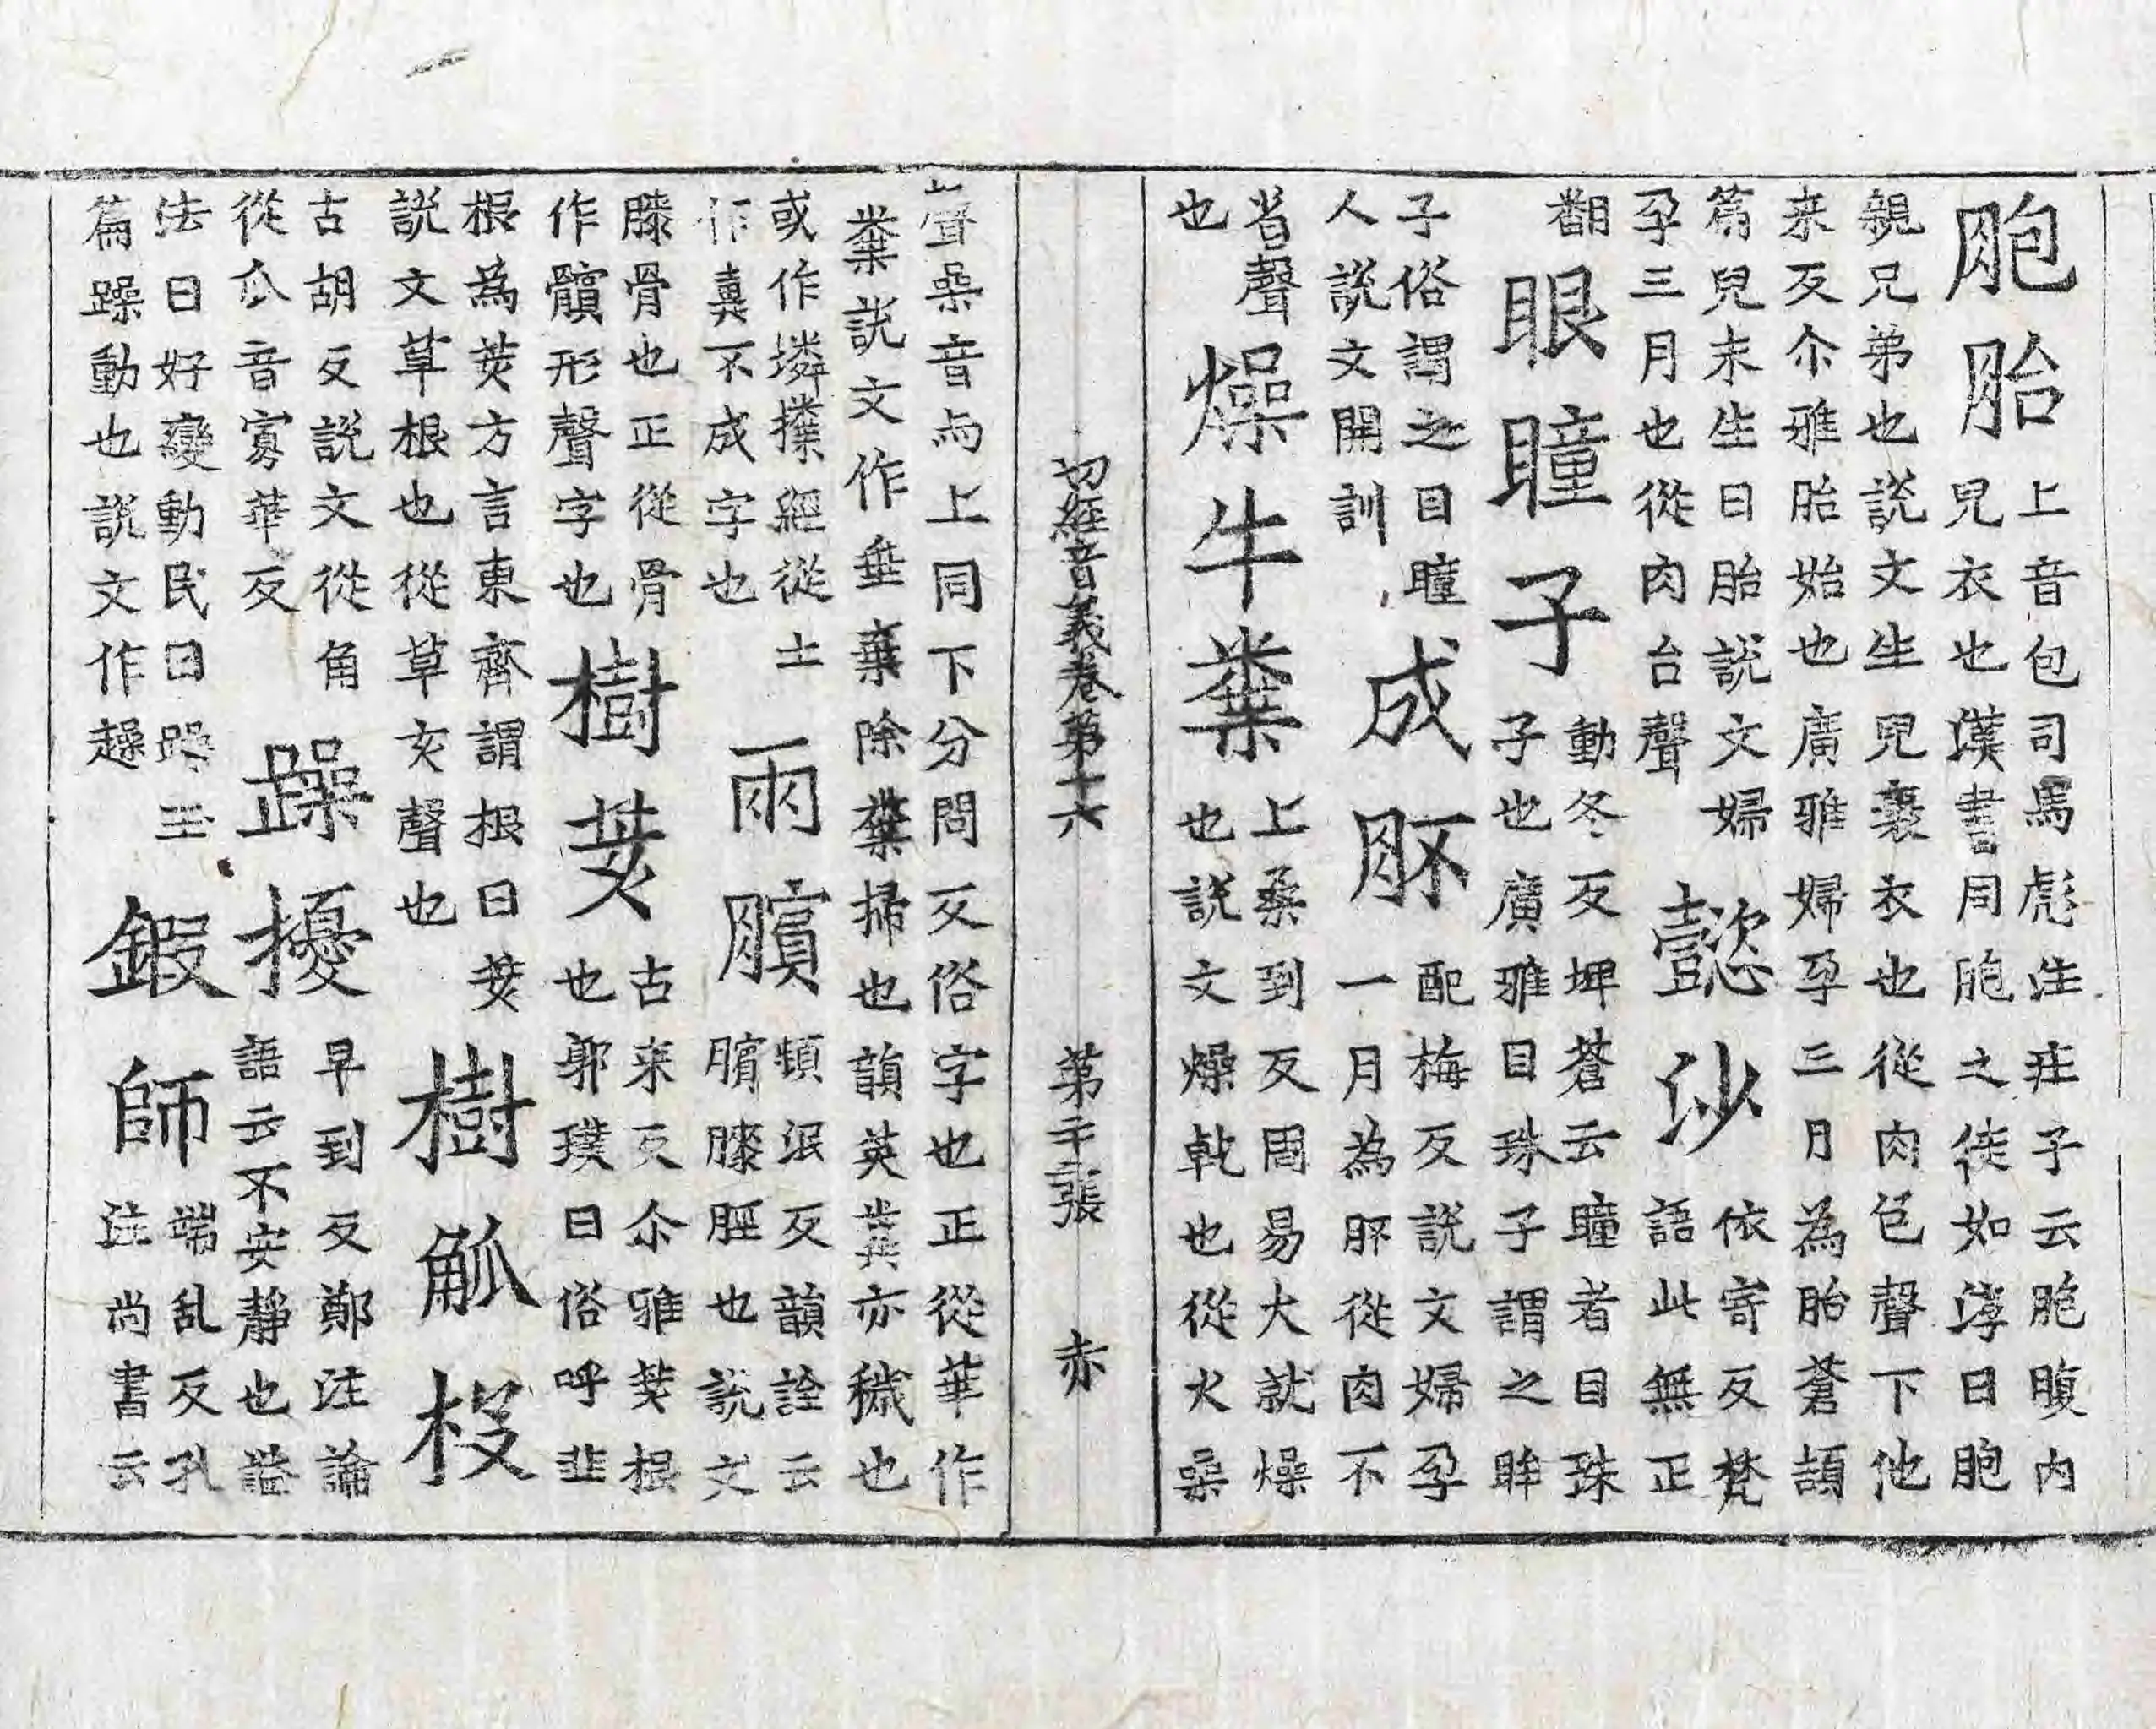 胞胎上音包司馬彪注莊子云胞腹內
兒衣也漢書同胞之徒如淳曰胞
親兄弟也說文生兒裹衣也從肉包聲下他
来反尒雅胎始也廣雅婦孕三月為胎蒼頡
篇兒未生曰胎說文婦
孕三月也從肉台聲
懿㳂依寄反梵
語此無正
翻
眼瞳子動冬反埤蒼云瞳者目珠
子也廣雅目珠子謂之眸
子俗謂之目瞳
人說文開訓
成肧配梅反說文婦孕
一月為肧從肉不
省聲
也
燥牛糞上桑到反周易火就燥
也說文燥乾也從火喿
聲喿音与上同下分問反俗字也正從華作
糞說文作垂棄除糞掃也韻英糞亦穢也
或作𡑞㩳經從土
作糞不成字也
兩臏頻泯反韻詮云
臏膝脛也說文
膝骨也正從骨
作髕形聲字也
樹荄古来反尒雅荄根
也郭璞曰俗呼韭
根為荄方言東齊謂根曰荄
說文草根也從草亥聲也
樹觚杸
古胡反說文從角
從瓜音寡華反
躁擾早到反鄭注論
語云不安靜也謚
法曰好變動民曰躁玉
篇躁動也說文作趮
鍜師端乱反孔
注尚書云
切經音義卷第十六
第二十張
赤